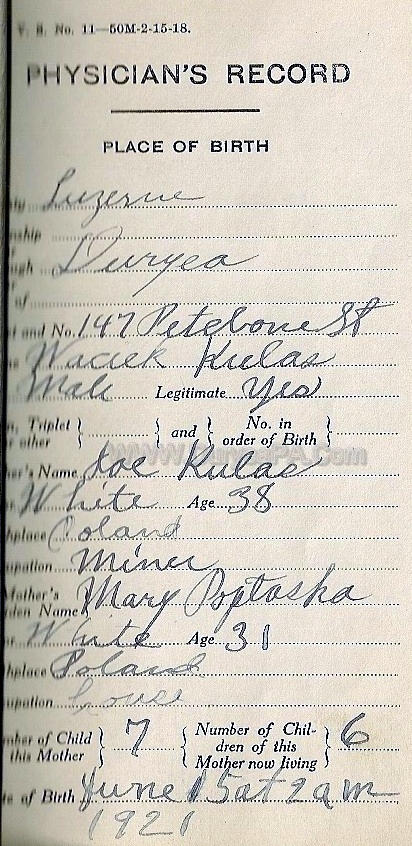 V. S. No. 11—50M-2-15-18.
PHYSICIAN'S RECORD
PLACE OF BIRTH
Luzerne
Duryea
of
and No. 147 Petebone St
Waciek Kulas
Male Legitimate Yes
Triplet other } { and { No. in order of Birth }
Name Joe Kulas
White Age 38
Poland
Miner
Mother's Name } Mary Poptasha
White Age 31
Poland
house
of Child this Mother } 7 { Number of Children of this Mother now living } 6
of Birth June 15 at 2 a m
1921